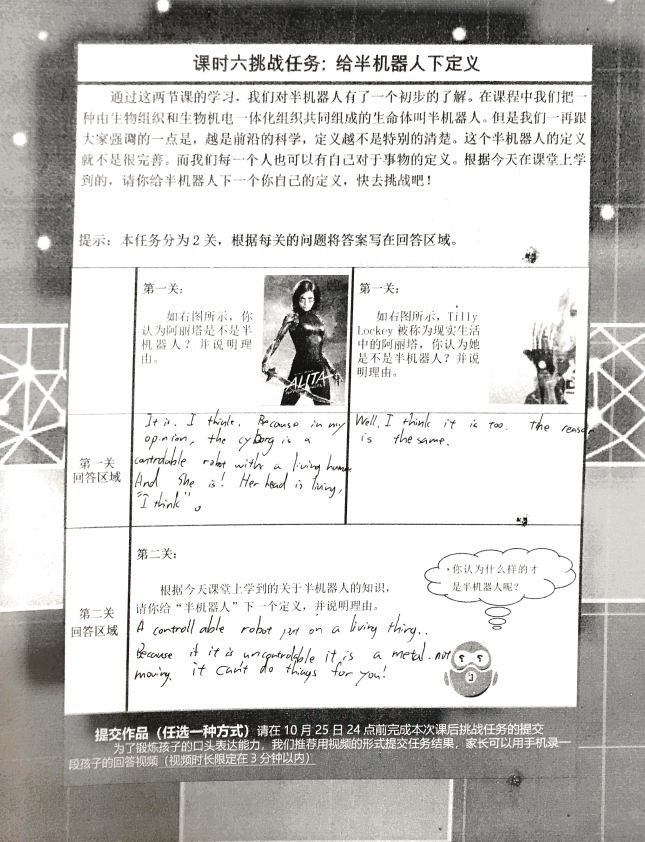 课时六挑战任务：给半机器人下定义
通过这两节课的学习，我们对半机器人有了一个初步的了解。在课程中我们把一
种由生物组织和生物机电一体化组织共同组成的生命体叫半机器人。但是我们一再跟
大家强调的一点是，越是前沿的科学，定义越不是特别的清楚。这个半机器人的定义
就不是很完善。而我们每一个人也可以有自己对于事物的定义。根据今天在课堂上学
到的，请你给半机器人下一个你自己的定义，快去挑战吧！
提示：本任务分为 2 关，根据每关的问题将答案写在回答区域。
第一关：
如右图所示，你
认为阿丽塔是不是半
机器人？并说明理
由。
ALITA
第一关：
如右图所示，Tilly
Lockey 被称为现实生活
中的阿丽塔，你认为她
是不是半机器人？并说
明理由。
第一关
回答区域
It is. I think. Because in my
opinion, the cyborg is a
controlable robot with a living human
And She is! Her head is living,
"I think"。
Well. I think it is too. The reason
is the same.
第二关：
根据今天课堂上学到的关于半机器人的知识，
请你给“半机器人”下一个定义，并说明理由。
·你认为什么样的才
是半机器人呢？
第二关
回答区域
A controllable robot put on a living thing..
Because if it is uncontrolable it is a metal. not
moving. it can't do things for you!
提交作品（任选一种方式）请在 10 月 25 日 24 点前完成本次课后挑战任务的提交
为了锻炼孩子的口头表达能力，我们推荐用视频的形式提交任务结果，家长可以用手机录一
段孩子的回答视频（视频时长限定在 3 分钟以内）